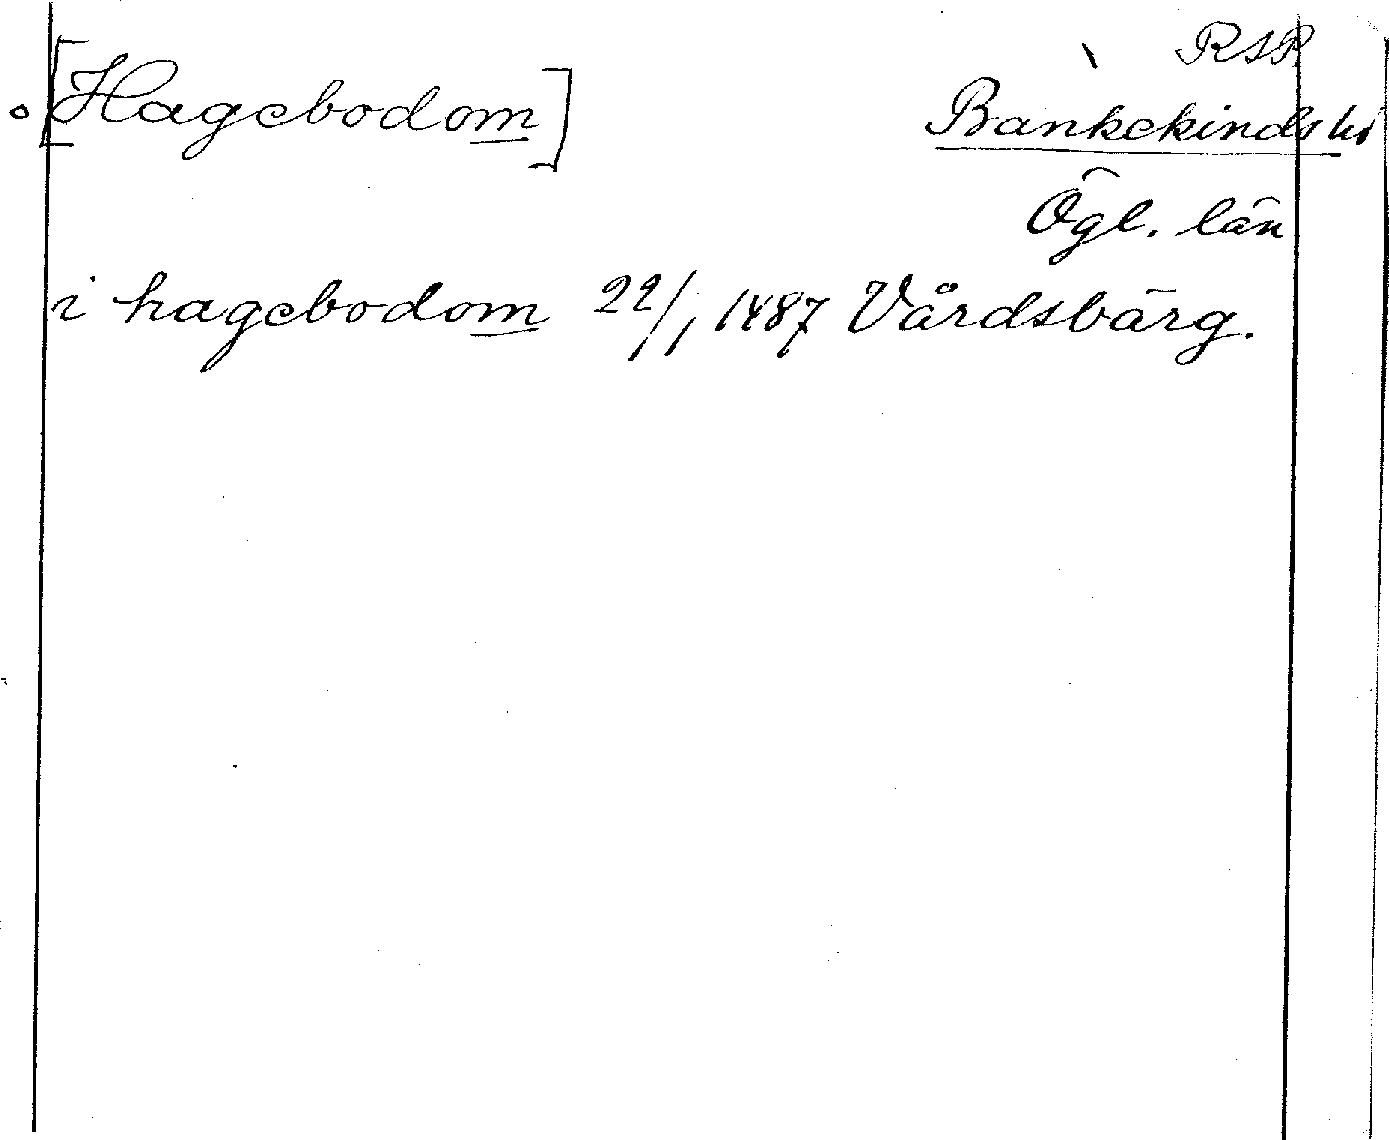 RSP
[Hagebodom]
Bankekinds hd
Ögl. län
i hagebodom 22/1 1487 Vårdsbärg.